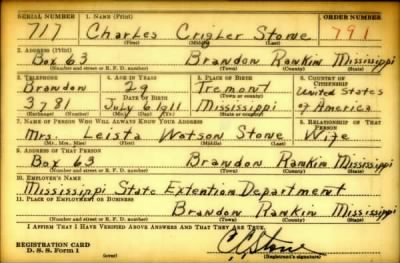 SERIAL NUMBER 1. NAME (Print) ORDER NUMBER
717 Charles Crigler Stone 791
(First) (Middle) (Last)
2. ADDRESS (Print)
Box 63 Brandon Rankin Mississippi
(Number and street or R. F. D. number) (Town) (County) (State)
3. TELEPHONE 4. AGE IN YEARS 5. PLACE OF BIRTH 6. COUNTRY OF CITIZENSHIP
Brandon 29 Tremont United States
DATE OF BIRTH (Town or county)
3781 July 6 1911 Mississippi of America
(Exchange) (Number) (Mo.) (Day) (Yr.) (State or country)
7. NAME OF PERSON WHO WILL ALWAYS KNOW YOUR ADDRESS 8. RELATIONSHIP OF THAT PERSON
Mrs. Leista Watson Stone Wife
(Mr., Mrs., Miss) (First) (Middle) (Last)
9. ADDRESS OF THAT PERSON
Box 63 Brandon Rankin Mississippi
(Number and street or R. F. D. number) (Town) (County) (State)
10. EMPLOYER'S NAME
Mississippi State Extention Department
11. PLACE OF EMPLOYMENT OR BUSINESS
Brandon Rankin Mississippi
(Number and street or R. F. D. number) (Town) (County) (State)
I AFFIRM THAT I HAVE VERIFIED ABOVE ANSWERS AND THAT THEY ARE TRUE.
REGISTRATION CARD
D. S. S. Form 1 C C Stone
(Registrant's signature)